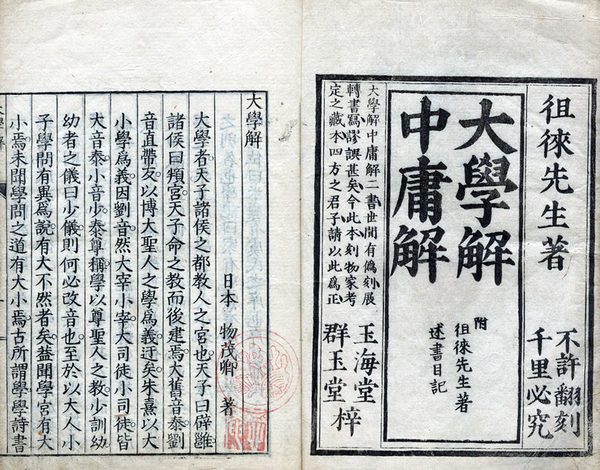 徂徠先生著
不許翻刻
千里必究
大學解
中庸解
附
徂徠先生著
述書日記
大學解中庸解二書世間有偽刻展
轉書寫謬誤甚矣今此本刻物家考
定之藏本四方之君子請以此爲正
玉海堂
群玉堂 梓
大學解
日本 物茂卿 著
大學者天子諸侯之都教人之宮也天子曰辟雝
諸侯曰頖宮天子命之教而後建焉大舊音泰劉
音直帶反以博大聖人之學爲義迂矣朱熹以大
小學爲義因劉音然大宰小宰大司徒小司徒皆
大音泰小音少泰尊稱學以尊聖人之教少訓幼
幼者之儀曰少儀則何必改音也至於以大人小
子學問有異爲說有大不然者矣蓋聞學宮有大
小焉未聞學問之道有大小焉古所謂學學詩書